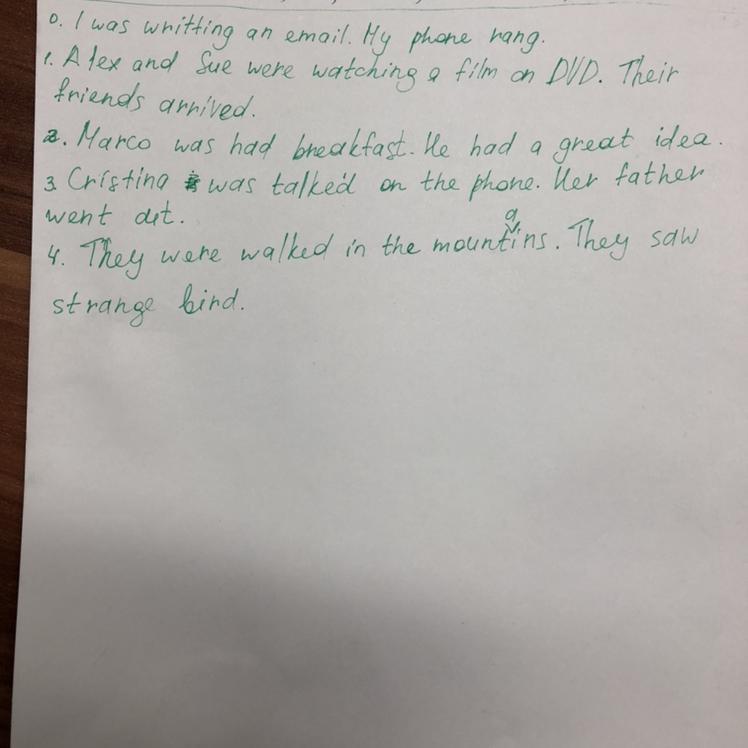 0. I was whitting an email. My phone rang.
1. Alex and Sue were watching a film on DVD. Their
friends arrived.
2. Marco was had breakfast. He had a great idea.
3 Cristina was talked on the phone. Her father
went out.
4. They were walked in the mountains. They saw
strange bird.